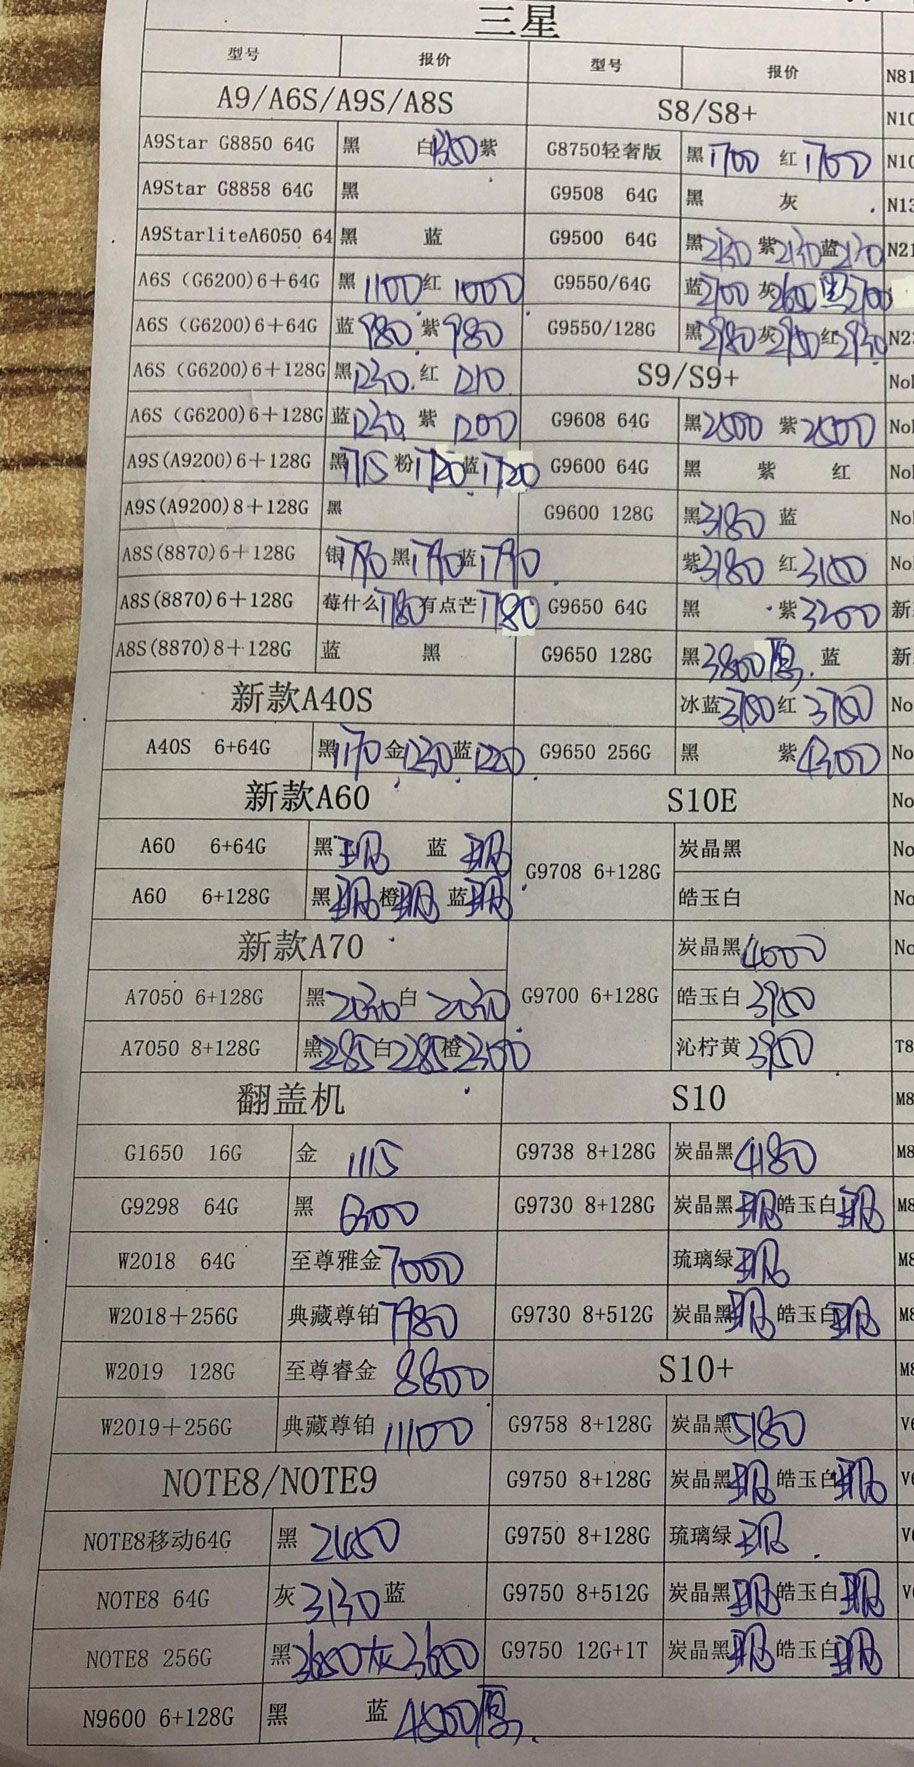 三星
型号 报价 型号 报价
N81
A9/A6S/A9S/A8S S8/S8+
N10
A9Star G8850 64G 黑 白1350紫 G8750轻奢版 黑1700 红1700 N10
A9Star G8858 64G 黑 G9508 64G 黑 灰 N13
A9StarliteA6050 64 黑 蓝 G9500 64G 黑2130 紫2130蓝2130 N21
A6S (G6200)6+64G 黑1100红1000 G9550/64G 蓝2700 灰2600 2700
A6S (G6200)6+64G 蓝980 紫980 G9550/128G 黑2980灰2950红2930 N2
A6S (G6200)6+128G 黑1230 红 1210 S9/S9+ No
A6S (G6200)6+128G 蓝1230 紫 1200 G9608 64G 黑2500 紫2500 No
A9S(A9200)6+128G 黑1715 粉1720蓝1720 G9600 64G 黑 紫 红 No
A9S(A9200)8+128G 黑 G9600 128G 黑3180 蓝 No
A8S(8870)6+128G 银1790 黑1790蓝1790 紫3180 红3100 No
A8S(8870)6+128G 莓什么1780有点芒1780 G9650 64G 黑 紫3200 新
A8S(8870)8+128G 蓝 黑 G9650 128G 黑3800 蓝 新
新款A40S 冰蓝3780红3780 No
A40S 6+64G 黑1170金1230蓝1220 G9650 256G 黑 紫4300 No
新款A60 S10E No
A60 6+64G 黑 现 蓝 现 G9708 6+128G 炭晶黑 No
A60 6+128G 黑现橙现 蓝现 皓玉白 No
新款A70 炭晶黑4000 No
A7050 6+128G 黑2030白 2030 G9700 6+128G 皓玉白3950
A7050 8+128G 黑2285白2285橙2300 沁柠黄3950 T8
翻盖机 S10 M8
G1650 16G 金 1115 G9738 8+128G 炭晶黑4180 M8
G9298 64G 黑 6300 G9730 8+128G 炭晶黑现皓玉白现 M8
W2018 64G 至尊雅金7000 琉璃绿现 M8
W2018+256G 典藏尊铂7980 G9730 8+512G 炭晶黑现皓玉白现 M8
W2019 128G 至尊睿金 8800 S10+ M8
W2019+256G 典藏尊铂11100 G9758 8+128G 炭晶黑5180 V6
NOTE8/NOTE9 G9750 8+128G 炭晶黑现皓玉白现 V6
NOTE8移动64G 黑 2450 G9750 8+128G 琉璃绿现 V
NOTE8 64G 灰3130蓝 G9750 8+512G 炭晶黑现皓玉白现 V
NOTE8 256G 黑3650灰3650 G9750 12G+1T 炭晶黑现皓玉白现
N9600 6+128G 黑 蓝 4500